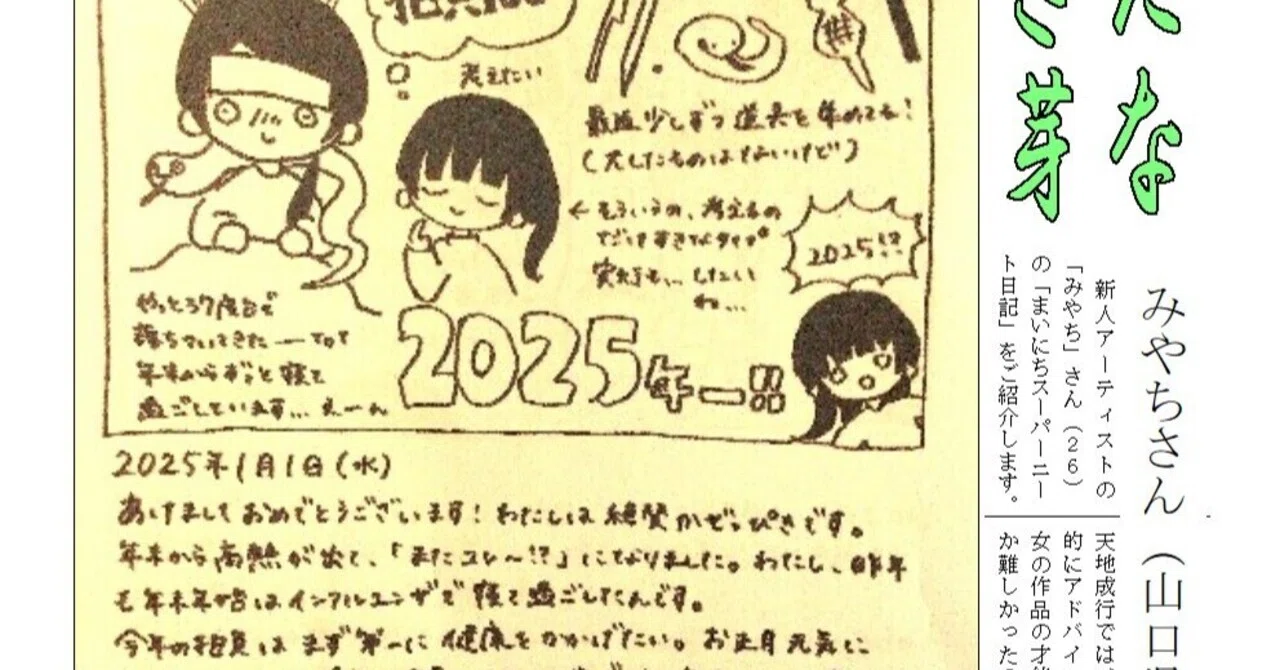 抱負
考えたい
最近少しずつ道具を集めてる!
(大したものはないけど)
←そういうの、考えるの
だけはすきなタイプ。
実行も…したい
ね…
2025!?
やっとこ37度台で
落ちついてきた――って
年末からずっと寝て
過ごしています…えーん
2025年ー!!
2025年1月1日(水)
あけましておめでとうございます!わたしは絶賛かぜっぴきです。
年末から高熱が出て、「またコレ〜!?」となりました。わたし、昨年
も年末年始はインフルエンザで寝て過ごしたんです。
今年の抱負はまず第一に健康をかかげたい。お正月元気に
な
芽
みやちさん(山口
新人アーティストの
「みやち」さん(26)
の「まいにちスーパーニー
ト日記」をご紹介します。
天地成行では、
的にアドバイ
女の作品の才能
か難しかった